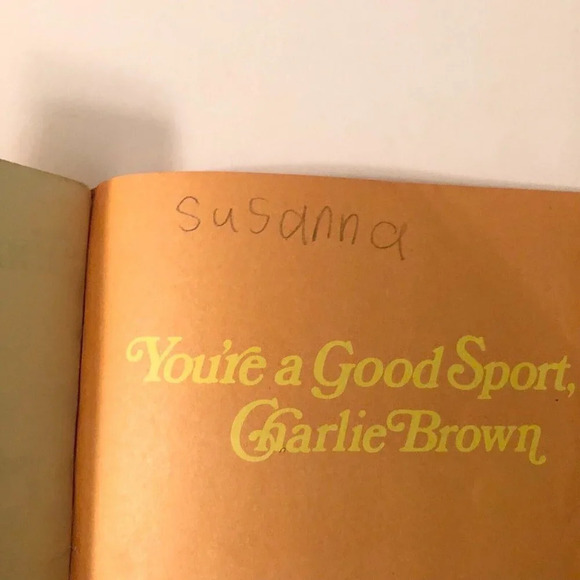 susanna
You're a Good Sport,
Charlie Brown